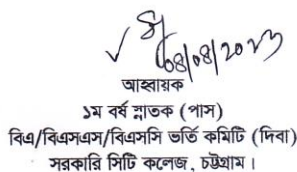 08/08/2023
আহবায়ক
১ম বর্ষ স্নাতক (পাস)
বিএ/বিএসএস/বিএসসি ভর্তি কমিটি (দিবা)
সরকারি সিটি কলেজ, চট্টগ্রাম।